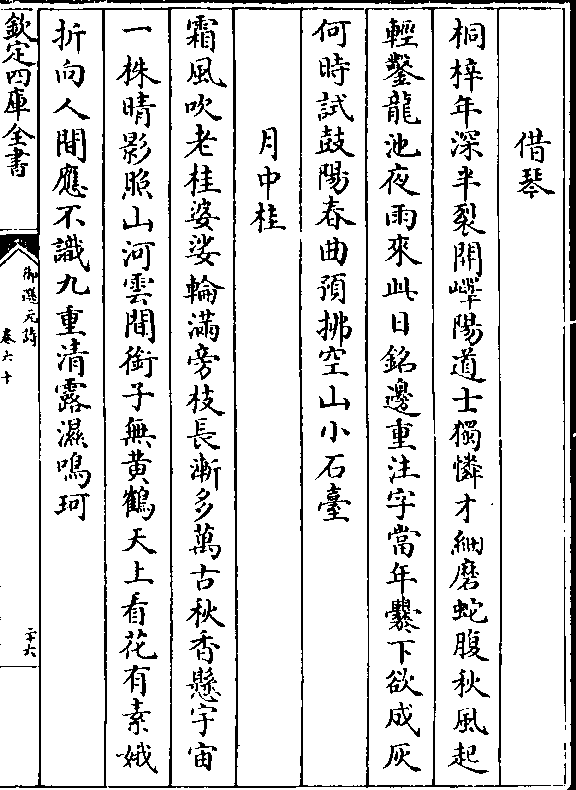 借琴
桐梓年深半裂開嶧陽道士獨憐才細磨蛇腹秋風起
輕鑿龍池夜雨來此日銘邊重注字當年爨下欲成灰
何時試鼓陽春曲預拂空山小石臺
月中桂
霜風吹老桂婆娑輪滿旁枝長漸多萬古秋香懸宇宙
一株晴影照山河雲間銜子無黄鶴天上看花有素娥
折向人間應不識九重清露濕鳴珂
欽定四庫全書
御選元詩
卷六十
二十六